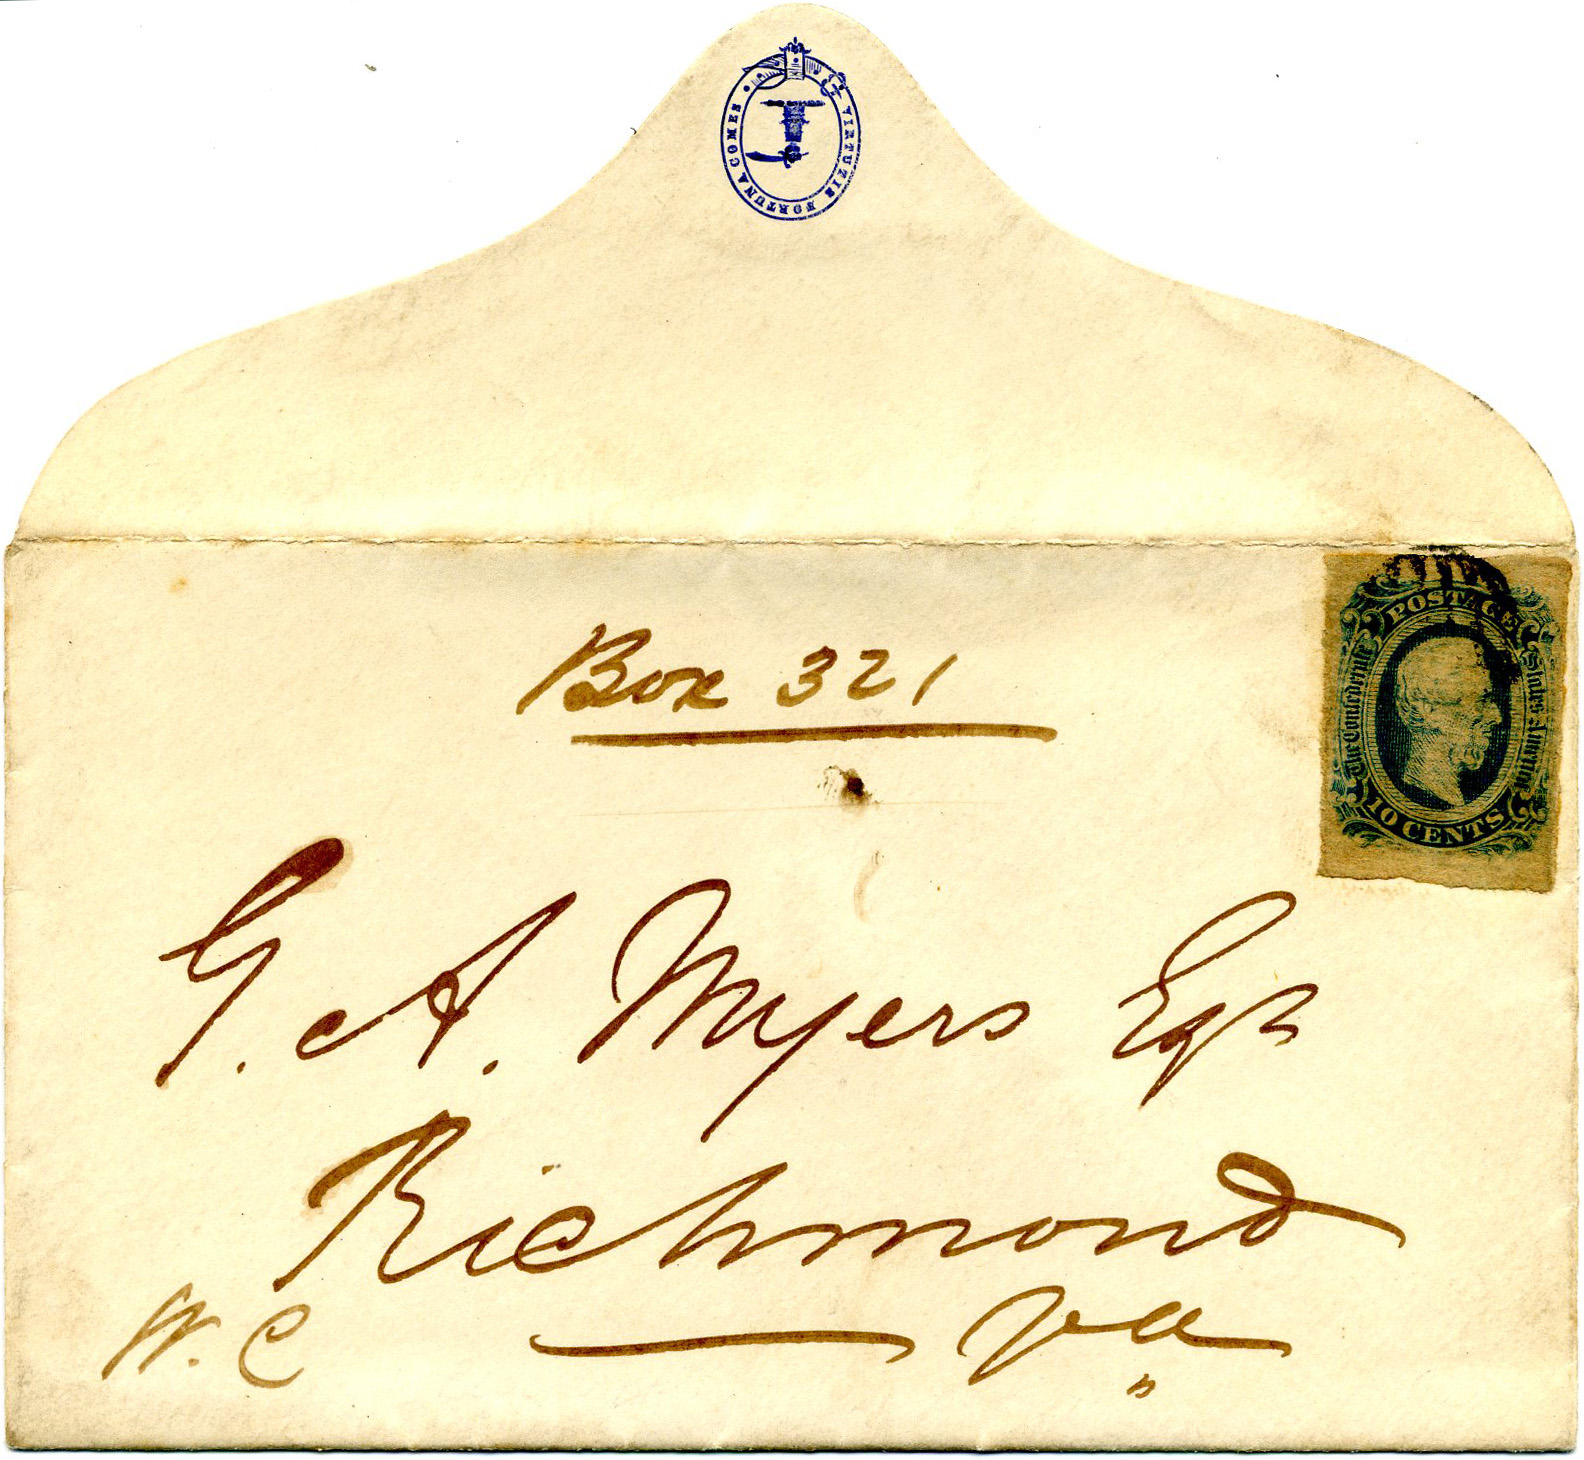 VIRTUTIS FORTUNA COMES
POSTAGE
The Confederate States America
10 CENTS
Box 321
G. A. Myers Esqr
Richmond
W. C
Va